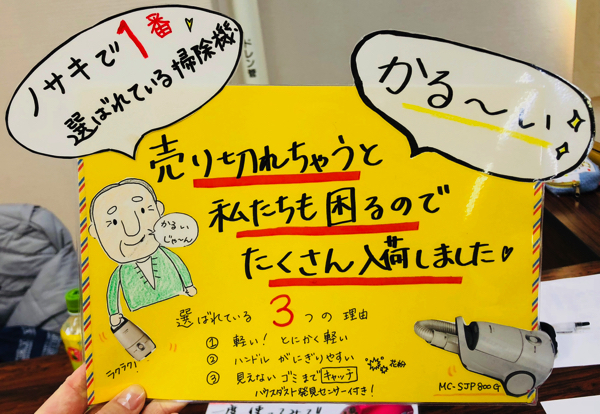 ノサキで1番
選ばれている掃除機!
かる〜い
ドレン管
売り切れちゃうと
私たちも困るので
たくさん入荷しました
かるい
じゃ〜ん
選ばれている3つの理由
① 軽い! とにかく軽い
② ハンドルがにぎりやすい
③ 見えないゴミまでキャッチ
花粉
ハウスダスト発見センサー付き!
ラクラク♪
MC-SJP800G